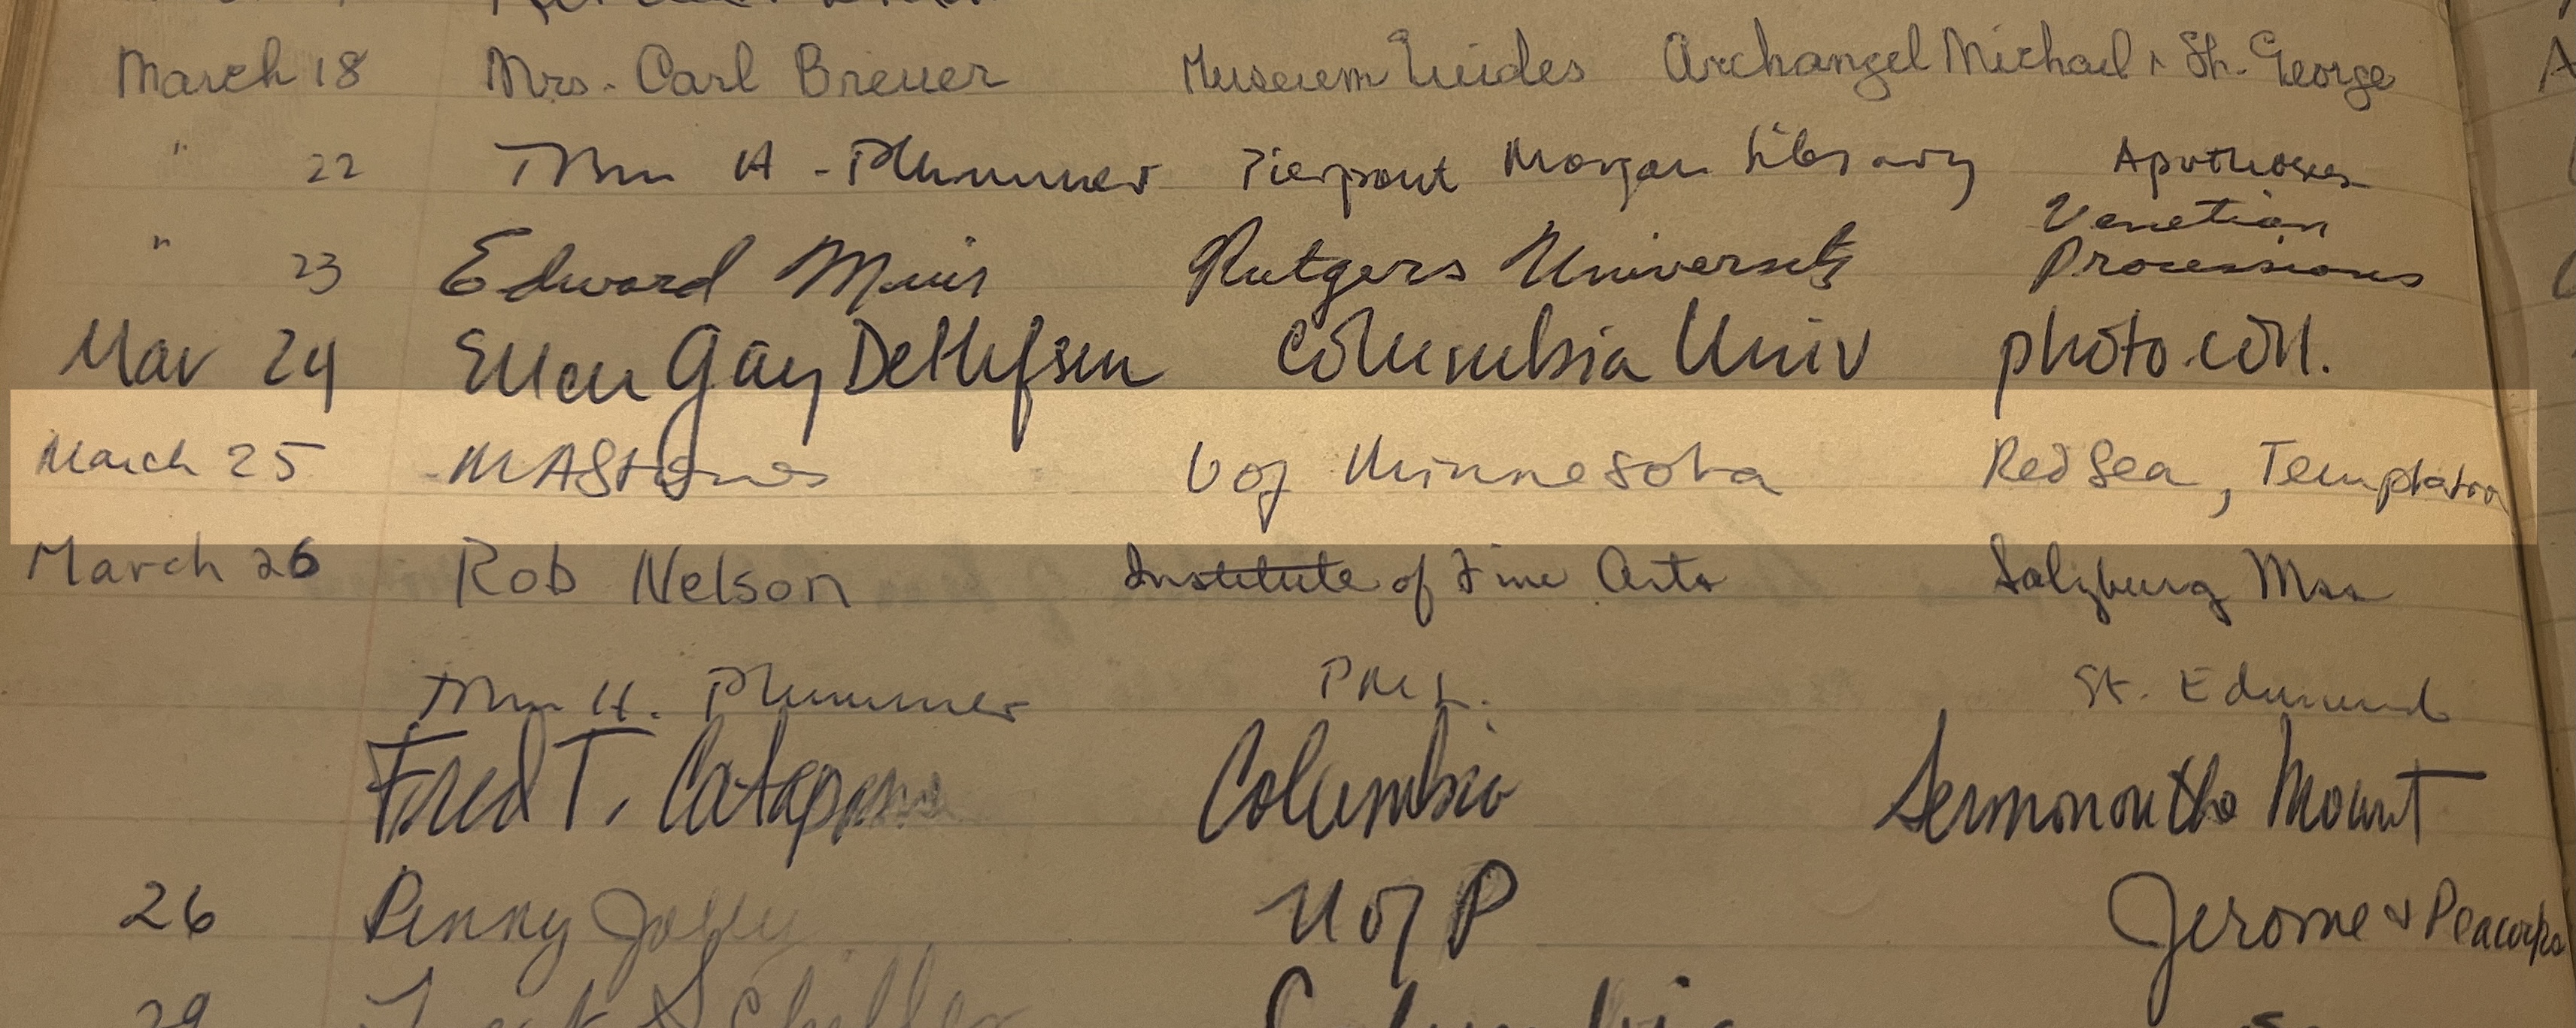 March 18 Mrs. Carl Breuer Museum Guides Archangel Michael + St. George
" 22 H. Plummer Pierpont Morgan Library Apotheoses
" 23 Edward Muir Rutgers University Venetian Processions
Mar 24 Ellen Gay Detlefsen Columbia Univ photo coll.
March 25 MAStones U of Minnesota Red Sea, Temptation
March 26 Rob Nelson Institute of Fine Arts Salzburg Mss
H. Plummer PML. St. Edmund
Fred T. Columbia Sermon on the Mount
26 Penny Jolly U of P Jerome & Peacocks
29 Columbia